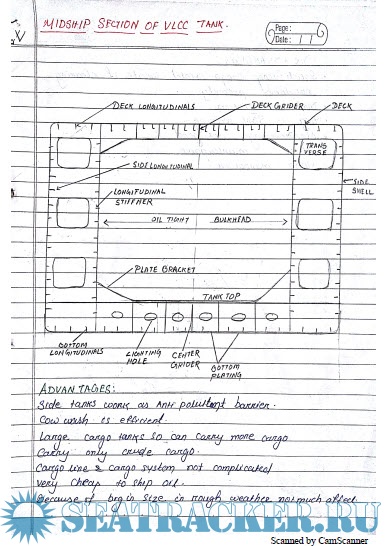 MIDSHIP SECTION OF VLCC TANK.
Page:
Date: / /
DECK LONGITUDINALS
DECK GRIDER
DECK
TRANS
VERSE
SIDE LONGITUDINAL
SIDE
SHELL
LONGITUDINAL
STIFFNER
OIL TIGHT BULKHEAD
PLATE BRACKET
TANK TOP
BOTTOM
LONGITUDINALS
LIGHTING
HOLE
CENTER
GRIDER
BOTTOM
PLATING
ADVANTAGES:
Side tanks work as Anti pollutent barrier.
Cow wash is efficient.
Large cargo tanks so can carry more cargo
Carry only crude cargo.
Cargo line & cargo system not complicated
Very cheap to ship oil.
Because of big in size in rough weather not much affect.
SEATRACKER.RU
Scanned by CamScanner